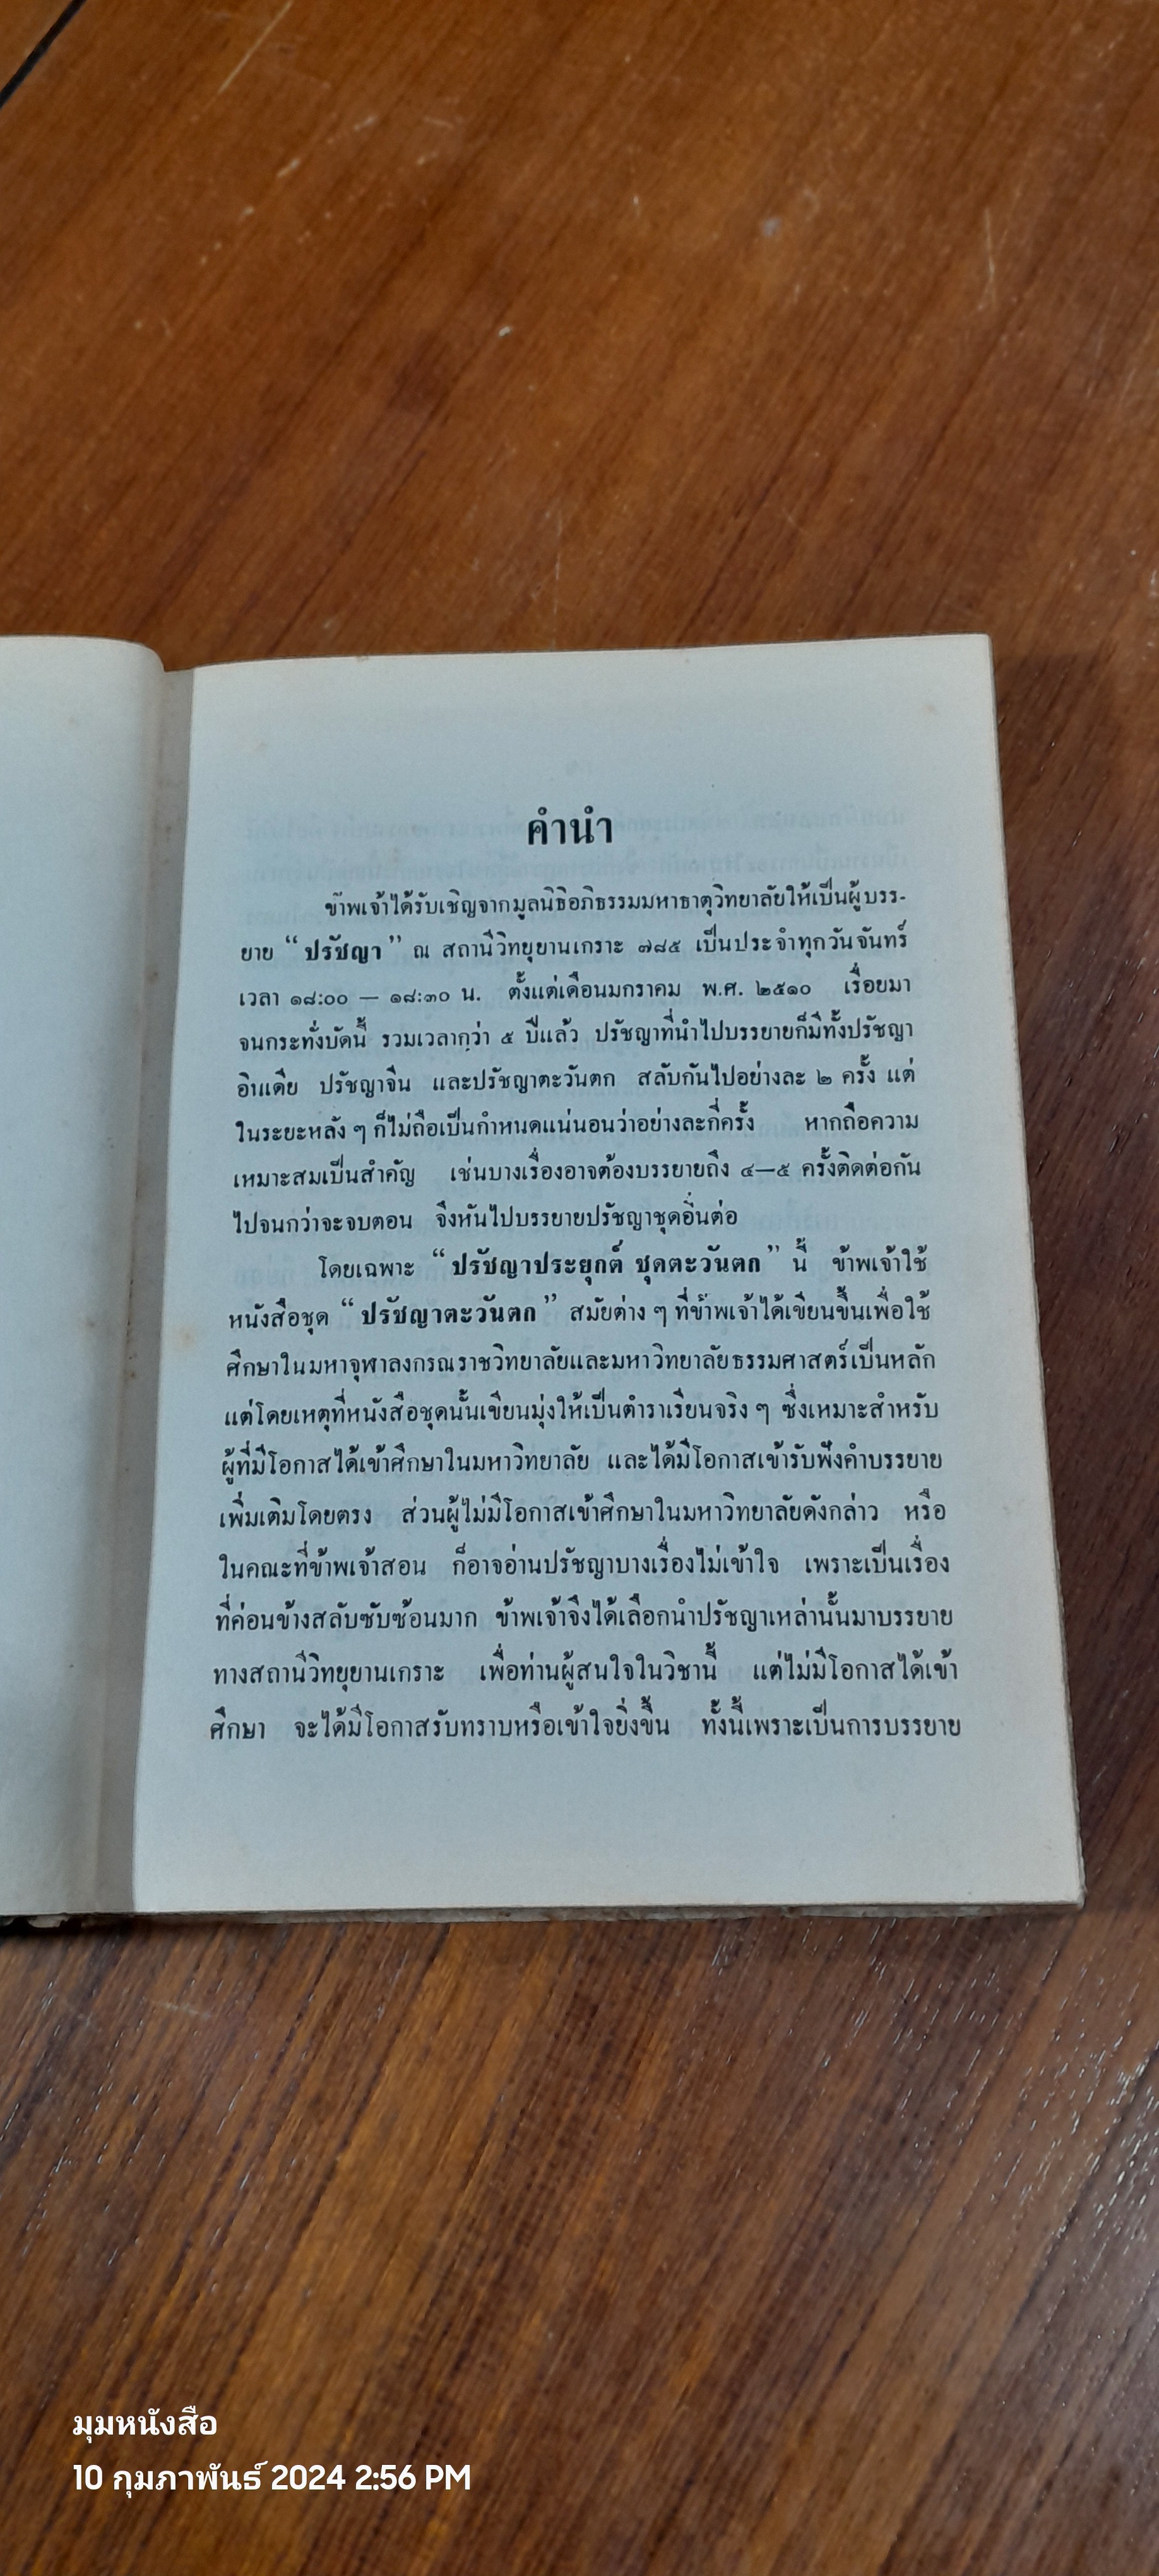 คำนำ
ข้าพเจ้าได้รับเชิญจากมูลนิธิอภิธรรมมหาธาตุวิทยาลัยให้เป็นผู้บรร-
ยาย “ปรัชญา” ณ สถานีวิทยุยานเกราะ ๗๘๕ เป็นประจำทุกวันจันทร์
เวลา ๑๘:๐๐ — ๑๘:๓๐ น. ตั้งแต่เดือนมกราคม พ.ศ. ๒๕๑๐ เรื่อยมา
จนกระทั่งบัดนี้ รวมเวลากว่า ๕ ปีแล้ว ปรัชญาที่นำไปบรรยายก็มีทั้งปรัชญา
อินเดีย ปรัชญาจีน และปรัชญาตะวันตก สลับกันไปอย่างละ ๒ ครั้ง แต่
ในระยะหลัง ๆ ก็ไม่ถือเป็นกำหนดแน่นอนว่าอย่างละกี่ครั้ง หากถือความ
เหมาะสมเป็นสำคัญ เช่นบางเรื่องอาจต้องบรรยายถึง ๔—๕ ครั้งติดต่อกัน
ไปจนกว่าจะจบตอน จึงหันไปบรรยายปรัชญาชุดอื่นต่อ
โดยเฉพาะ “ปรัชญาประยุกต์ ชุดตะวันตก” นี้ ข้าพเจ้าใช้
หนังสือชุด “ปรัชญาตะวันตก” สมัยต่าง ๆ ที่ข้าพเจ้าได้เขียนขึ้นเพื่อใช้
ศึกษาในมหาจุฬาลงกรณราชวิทยาลัยและมหาวิทยาลัยธรรมศาสตร์เป็นหลัก
แต่โดยเหตุที่หนังสือชุดนั้นเขียนมุ่งให้เป็นตำราเรียนจริง ๆ ซึ่งเหมาะสำหรับ
ผู้ที่มีโอกาสได้เข้าศึกษาในมหาวิทยาลัย และได้มีโอกาสเข้ารับฟังคำบรรยาย
เพิ่มเติมโดยตรง ส่วนผู้ไม่มีโอกาสเข้าศึกษาในมหาวิทยาลัยดังกล่าว หรือ
ในคณะที่ข้าพเจ้าสอน ก็อาจอ่านปรัชญาบางเรื่องไม่เข้าใจ เพราะเป็นเรื่อง
ที่ค่อนข้างสลับซับซ้อนมาก ข้าพเจ้าจึงได้เลือกนำปรัชญาเหล่านั้นมาบรรยาย
ทางสถานีวิทยุยานเกราะ เพื่อท่านผู้สนใจในวิชานี้ แต่ไม่มีโอกาสได้เข้า
ศึกษา จะได้มีโอกาสรับทราบหรือเข้าใจยิ่งขึ้น ทั้งนี้เพราะเป็นการบรรยาย
มุมหนังสือ
10 กุมภาพันธ์ 2024 2:56 PM